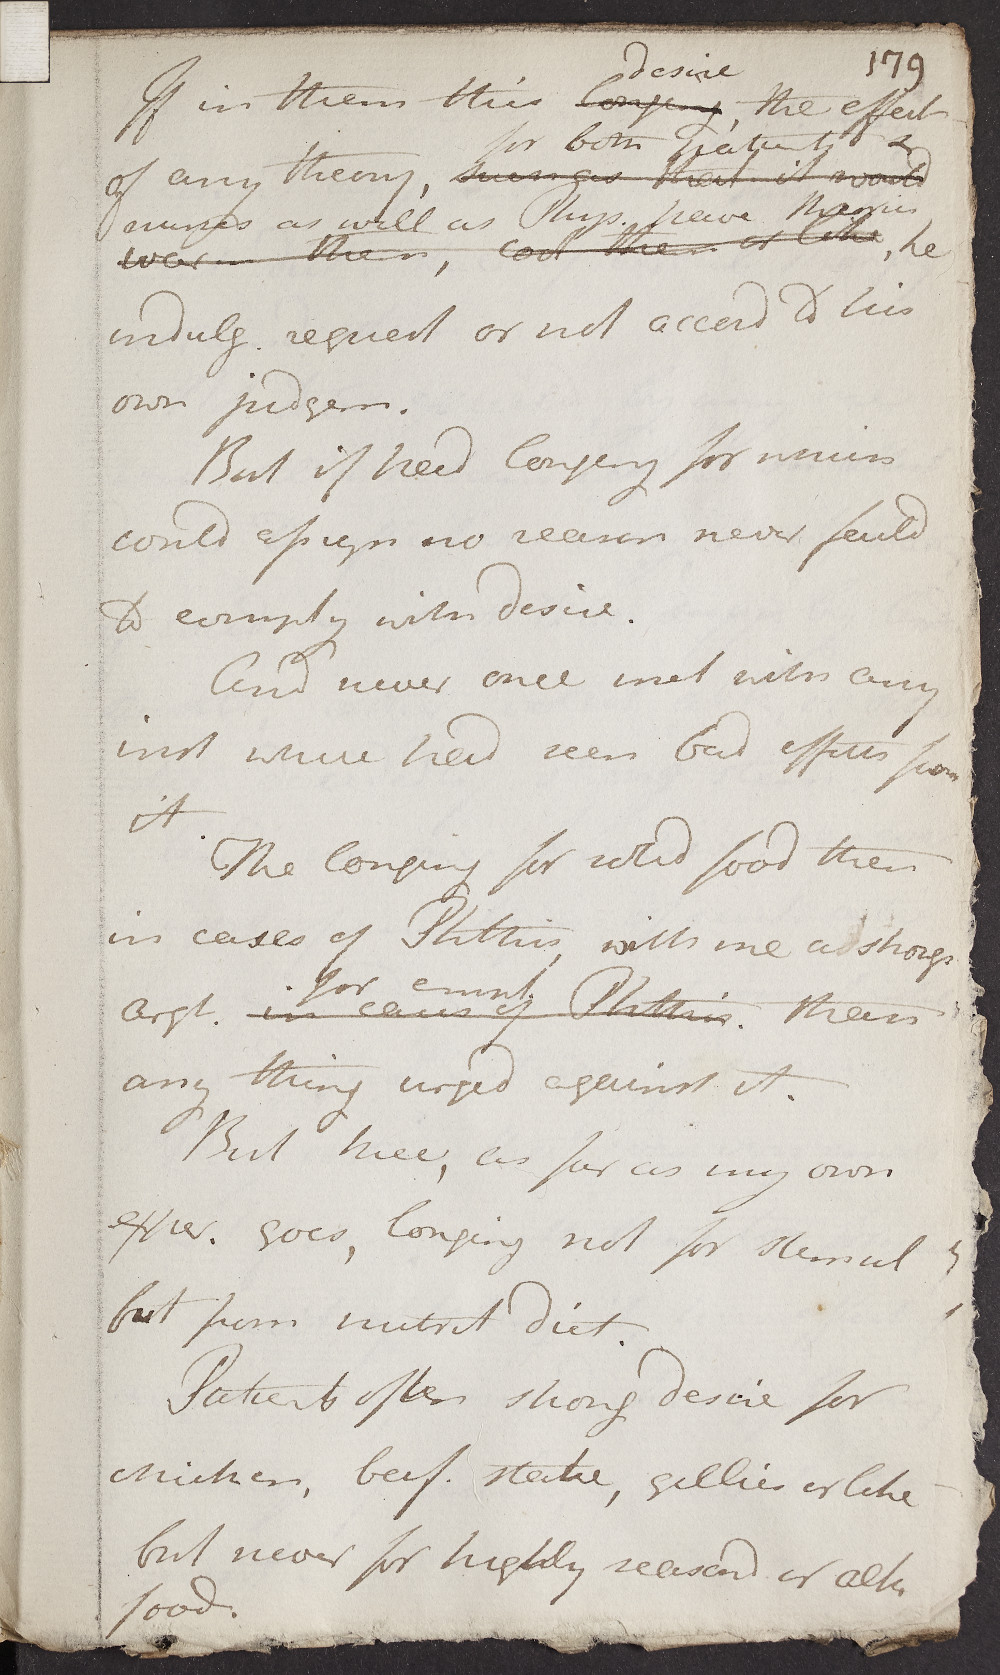 179
desire
If in them this longing, the effect
for both Patients &
of any theory, such as that it would
nurses as well as Phys. have theories
warm them, cool them or like, he
indulg. request or not accord to his
own judgem.
But if he'd longing for which
could assign no reason never faild
to comply with desire.
And never once met with any
inst where he'd seen bad effects from
it.
The longing for solid food then
in cases of Phthisis, with me a strong
for empl.
argt. in cases of Phthisis. than
any thing urged against it.
But here, as far as my own
exper. goes, longing not for stimul
but from nutrit diet.
Patients often strong desire for
chicken, beef. stake, gellies or like
but never for highly seasond or alk
food.